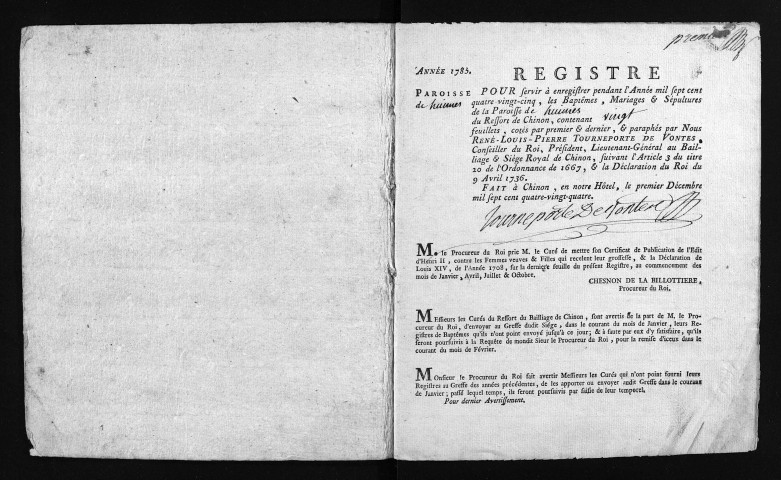 premier
ANNÉE 1785.
REGISTRE
PAROISSE
de huismes
POUR servir à enregistrer pendant l'Année mil sept cent
quatre-vingt-cinq, les Baptêmes, Mariages & Sépultures
de la Paroisse de huismes
du Ressort de Chinon, contenant vingt
feuillets, cotés par premier & dernier, & paraphés par Nous
RENÉ-LOUIS-PIERRE TOURNEPORTE DE VONTES,
Conseiller du Roi, Président, Lieutenant-Général au Bail-
liage & Siége Royal de Chinon, suivant l'Article 3 du titre
20 de l'Ordonnance de 1667, & la Déclaration du Roi du
9 Avril 1736.
FAIT à Chinon, en notre Hôtel, le premier Décembre
mil sept cent quatre-vingt-quatre.
Tourneporte De Vontes
M. le Procureur du Roi prie M. le Curé de mettre son Certificat de Publication de l'Edit
d'Henri II, contre les Femmes veuves & Filles qui recelent leur grossesse, & la Déclaration de
Louis XIV, de l'Année 1708, sur la derniere feuille du présent Registre, au commencement des
mois de Janvier, Avril, Juillet & Octobre.
CHESNON DE LA BILLOTTIERE,
Procureur du Roi.
MESsieurs les Curés du Ressort du Bailliage de Chinon, sont avertis de la part de M. le Pro-
cureur du Roi, d'envoyer au Greffe dudit Siége, dans le courant du mois de Janvier, leurs Re-
gistres de Baptêmes qu'ils n'ont point envoyé jusqu'à ce jour; & à faute par eux d'y satisfaire, qu'ils
seront poursuivis à la Requête de mondit Sieur le Procureur du Roi, pour la remise d'iceux dans le
courant du mois de Février.
MOnsieur le Procureur du Roi fait avertir Messieurs les Curés qui n'ont point fourni leurs
Registres au Greffe des années précédentes, de les apporter ou envoyer audit Greffe dans le courant
de Janvier; passé lequel temps, ils seront poursuivis par saisie de leur temporel.
Pour dernier Avertissement.